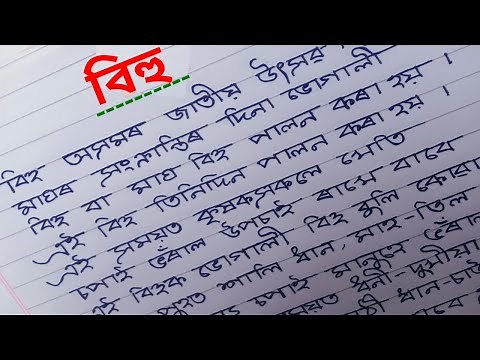 বিহু
বিহু অসমৰ জাতীয় উৎসৱ
মাঘৰ সংক্ৰান্তিৰ দিনা ভোগালী
বিহু বা মাঘ বিহু পালন কৰা হয় ।
এই বিহু তিনিদিন পালন কৰা হয় ।
এই সময়ত কৃষকসকলে খেতি
চপাই ভঁৰাল উপচাই ৰাখে বাবে
এই বিহুক ভোগালী বিহু বুলি কোৱা
পুহত শালি ধান, মাহ-তিল
চপাই মানুহে ভঁৰাল
ধনী-দুখীয়া
ধান-চাউ